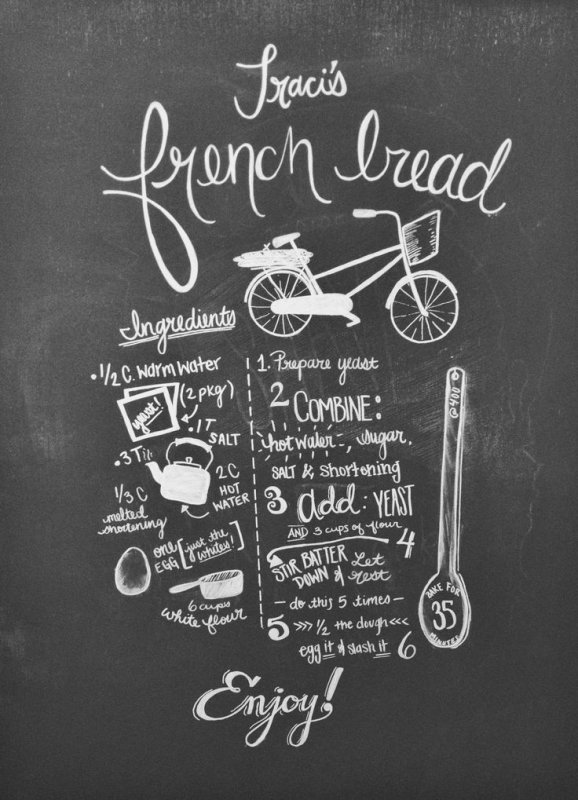 Traci's
french bread
Ingredients
• 1/2 C. warm water
(2 pkg)
yeast!
• 1 T
SALT
• 3 T
2 C
HOT
WATER
1/3 C
melted
shortening
one
EGG [just the
whites!]
6 cups
white flour
1. Prepare yeast
2 COMBINE:
hot water, sugar,
SALT & shortening
3 add: YEAST
AND 3 cups of flour
4
STIR BATTER
DOWN & Let
rest
— do this 5 times —
5 >>> 1/2 the dough <<<
egg it & slash it 6
@ 400
BAKE FOR
35
MINUTES
Enjoy!